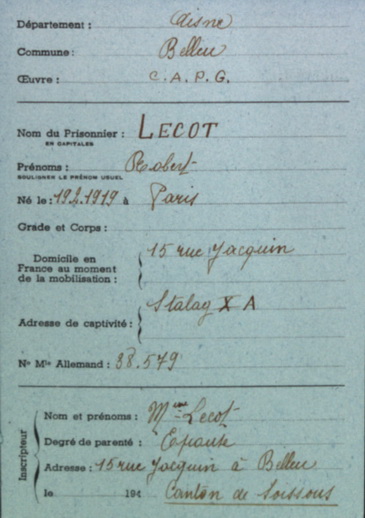 Département : Aisne
Commune : Belleu
Œuvre : C.A.P.G.
Nom du Prisonnier : LECOT
EN CAPITALES
Prénoms : Robert
SOULIGNER LE PRÉNOM USUEL
Né le : 19.2.1919 à Paris
Grade et Corps :
Domicile en
France au moment
de la mobilisation :
15 rue Jacquin
Stalag X A
Adresse de captivité :
Nº Mle Allemand : 38.579
Inscripteur
Nom et prénoms : Mme Lecot
Degré de parenté : Epouse
Adresse : 15 rue Jacquin à Belleu
le 194 Canton de Soissons